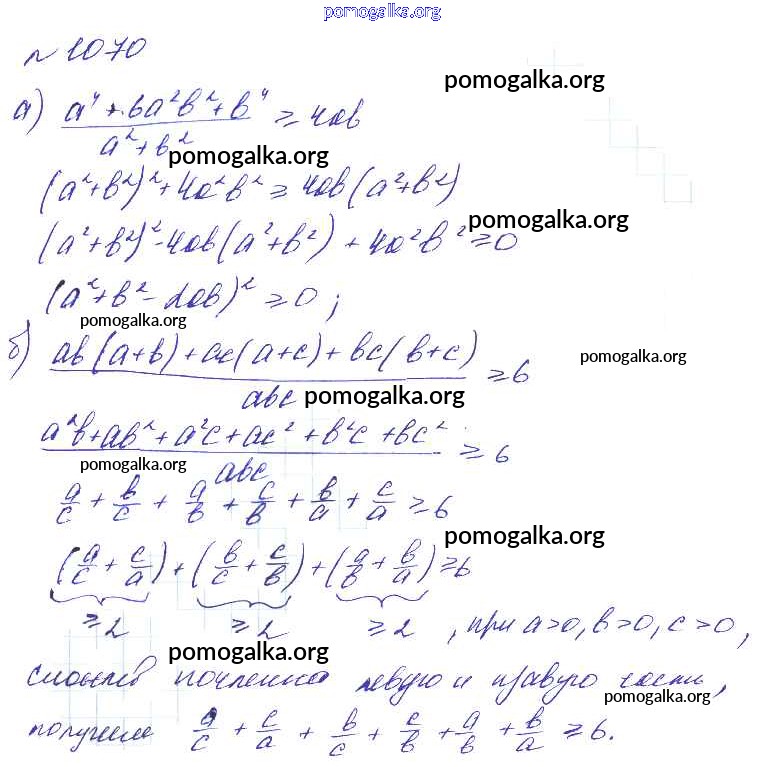 pomogalka.org
№ 1070
pomogalka.org
а) (a⁴ + 6a²b² + b⁴)/(a² + b²) ≥ 4ab
pomogalka.org
(a²+b²)² + 4a²b² ≥ 4ab(a²+b²)
pomogalka.org
(a²+b²)² - 4ab(a²+b²) + 4a²b² ≥ 0
(a²+b² - 2ab)² ≥ 0;
pomogalka.org
б) (ab(a+b) + ac(a+c) + bc(b+c))/abc ≥ 6
pomogalka.org
pomogalka.org
(a²b + ab² + a²c + ac² + b²c + bc²)/abc ≥ 6
pomogalka.org
a/c + b/c + a/b + c/b + b/a + c/a ≥ 6
pomogalka.org
(a/c + c/a) + (b/c + c/b) + (a/b + b/a) ≥ 6
≥ 2 ≥ 2 ≥ 2, при a>0, b>0, c>0,
pomogalka.org
сложив почленно левую и правую части,
pomogalka.org
получим a/c + c/a + b/c + c/b + a/b + b/a ≥ 6.
pomogalka.org